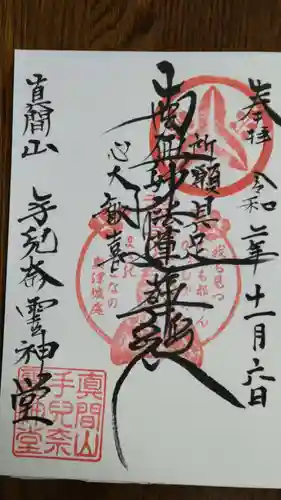 奉拝
令和二年十一月六日
所願具足
南無妙法蓮華経
心大歓喜
真間山
手兒奈霊神堂
真間山
手兒奈
霊神堂